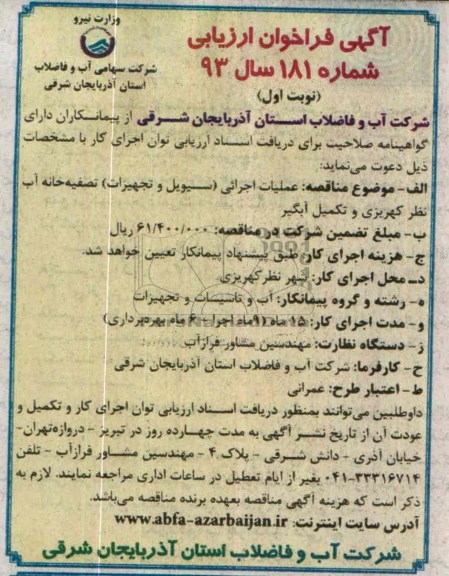 وزارت نیرو
شرکت سهامی آب و فاضلاب
استان آذربایجان شرقی
آگهی فراخوان ارزیابی
شماره ۱۸۱ سال ۹۳
(نوبت اول)
شرکت آب و فاضلاب استان آذربایجان شرقی از پیمانکاران دارای
گواهینامه صلاحیت برای دریافت اسناد ارزیابی توان اجرای کار با مشخصات
ذیل دعوت می‌نماید:
الف- موضوع مناقصه: عملیات اجرائی (سیویل و تجهیزات) تصفیه‌خانه آب
نظر کهریزی و تکمیل آبگیر
ب- مبلغ تضمین شرکت در مناقصه: ۶۱/۴۰۰/۰۰۰ ریال
ج- هزینه اجرای کار: طبق پیشنهاد پیمانکار تعیین خواهد شد.
د- محل اجرای کار: شهر نظرکهریزی
ه- رشته و گروه پیمانکار: آب و تاسیسات و تجهیزات
و- مدت اجرای کار: ۱۵ ماه (۹ ماه اجرا - ۶ ماه بهره‌برداری)
ز- دستگاه نظارت: مهندسین مشاور فرازآب
ح- کارفرما: شرکت آب و فاضلاب استان آذربایجان شرقی
ط- اعتبار طرح: عمرانی
داوطلبین می‌توانند بمنظور دریافت اسناد ارزیابی توان اجرای کار و تکمیل و
عودت آن از تاریخ نشر آگهی به مدت چهارده روز در تبریز - دروازه‌تهران-
خیابان آذری - دانش شرقی - پلاک ۴ - مهندسین مشاور فرازآب - تلفن
۰۴۱-۳۳۳۱۶۷۱۴ بغیر از ایام تعطیل در ساعات اداری مراجعه نمایند. لازم به
ذکر است که هزینه آگهی مناقصه بعهده برنده مناقصه می‌باشد.
آدرس سایت اینترنت: www.abfa-azarbaijan.ir
شرکت آب و فاضلاب استان آذربایجان شرقی